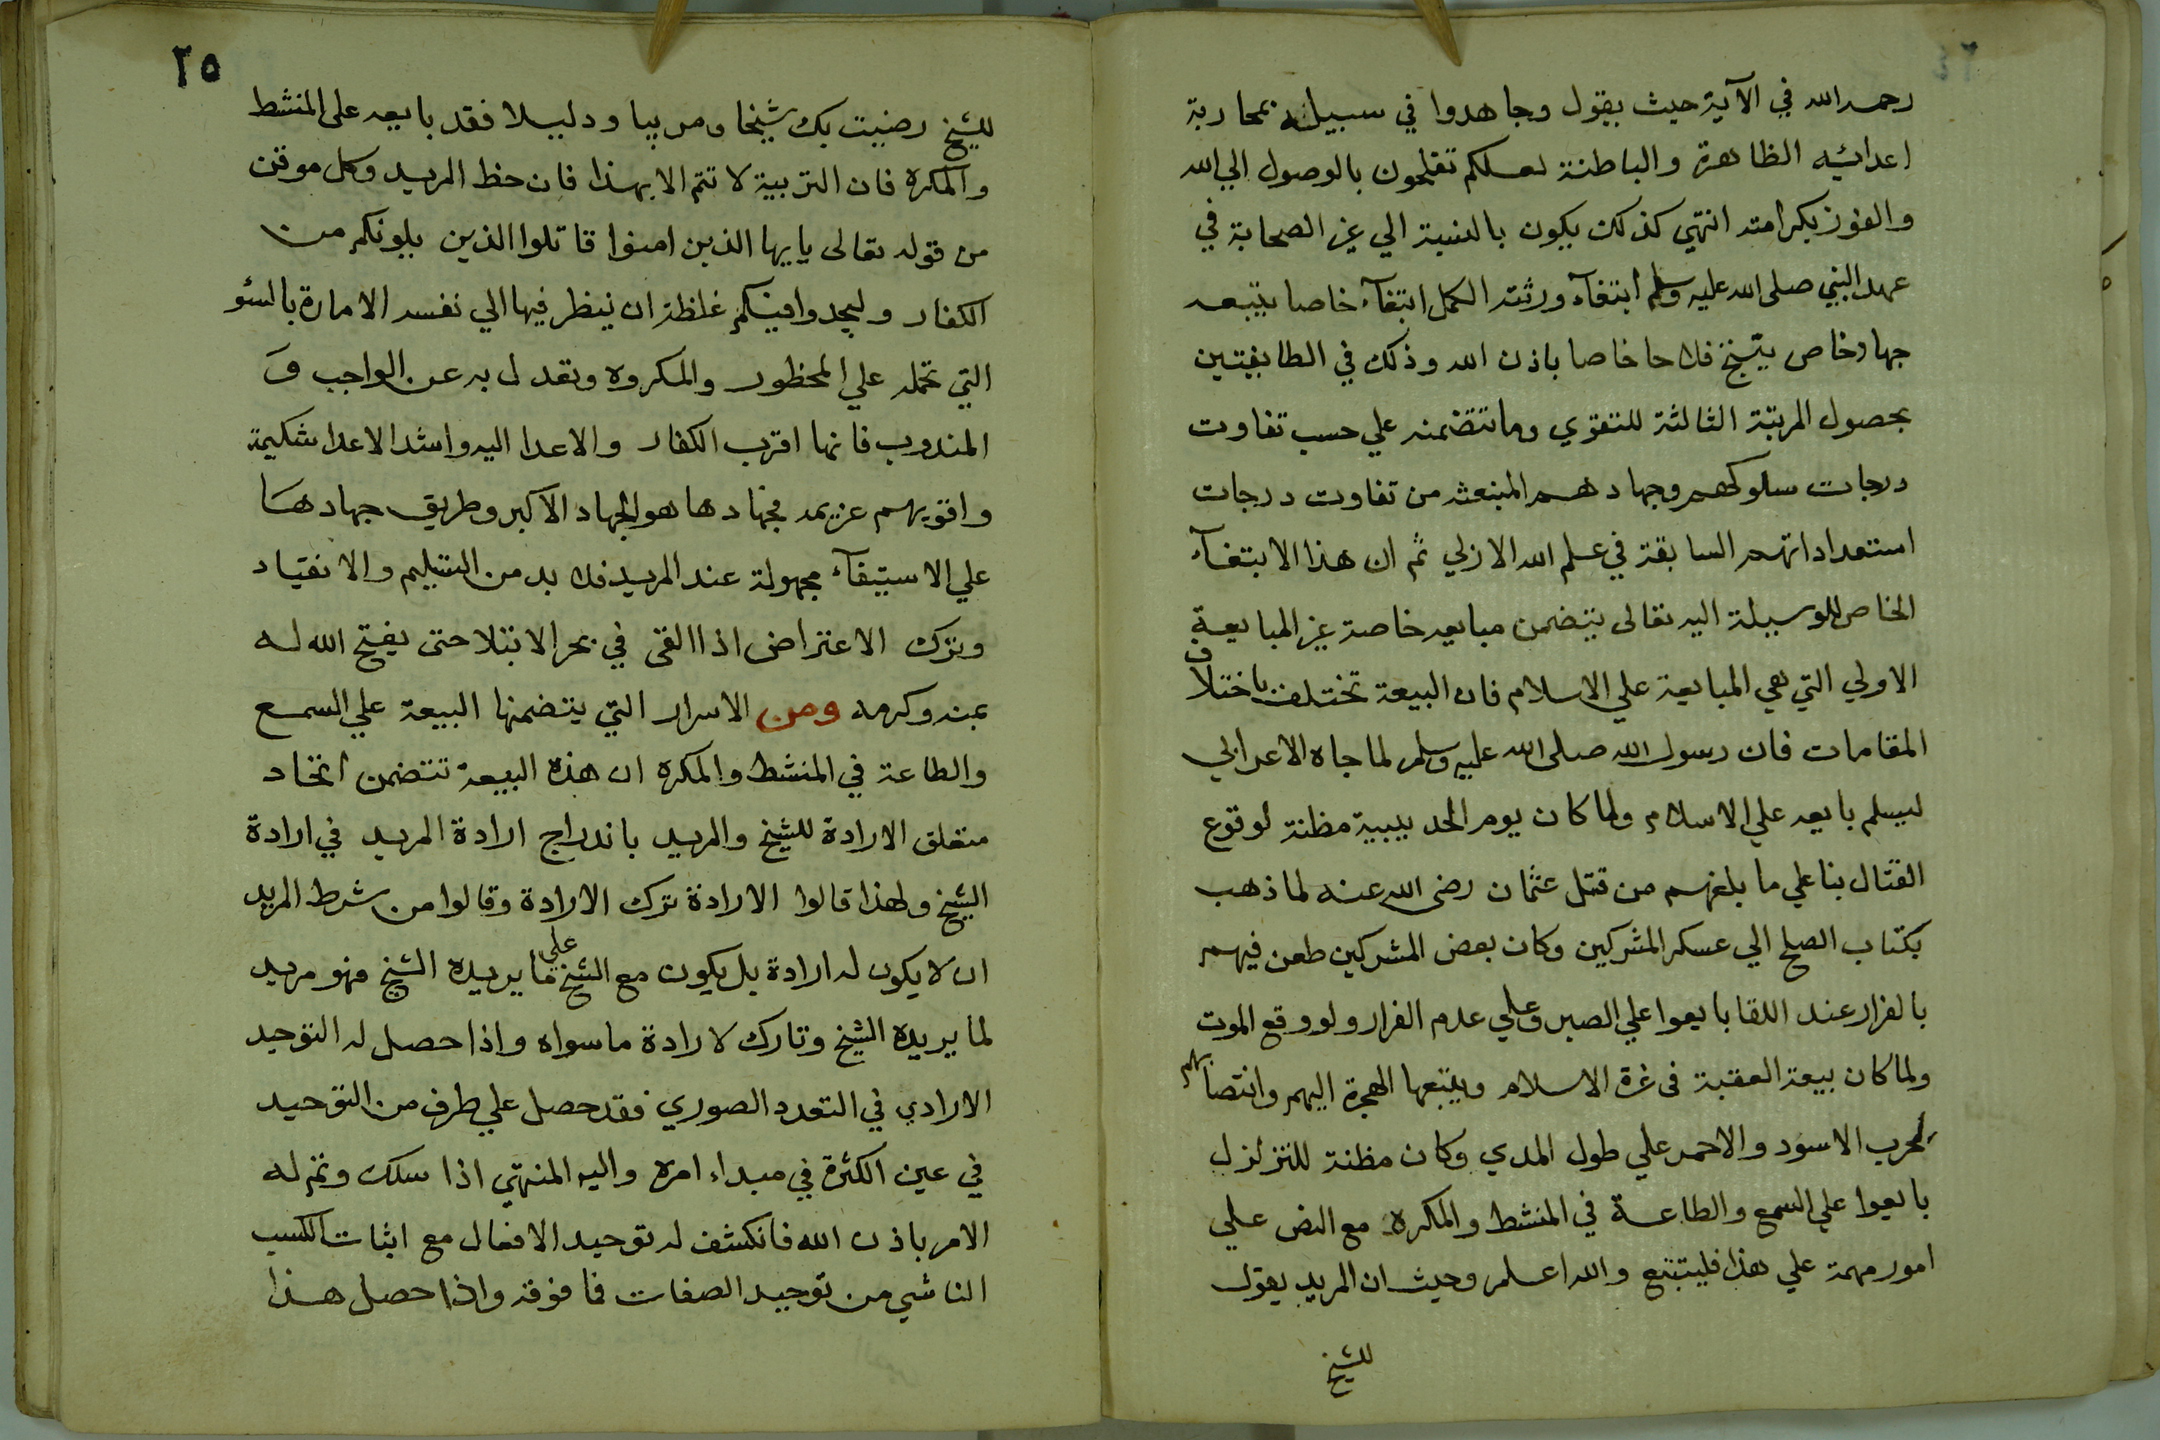 رحمه الله في الآية حيث يقول وجاهدوا في سبيله بمحاربة
اعدائيه الظاهرة والباطنة لعلكم تفلحون بالوصول الي الله
والفوز بكرامته انتهي كذلك يكون بالنسبة الي غير الصحابة في
عهد النبي صلى الله عليه وسلم ابتغآء ورثته الكمل ابتغآء خاصا يتبعه
جهاد خاص ينتج فلاحا خاصا باذن الله وذلك في الطايفتين
بحصول المرتبة الثالثة للتقوي وما تتضمنه علي حسب تفاوت
درجات سلوكهم وجهادهم المنبعث من تفاوت درجات
استعداداتهم السابقة في علم الله الازلي ثم ان هذا الابتغآء
الخاص للوسيلة اليه تعالى يتضمن مبايعه خاصة غير المبايعة
الاولي التي هي المبايعة علي الاسلام فان البيعة تختلف باختلاف
المقامات فان رسول الله صلى الله عليه وسلم لما جاه الاعرابي
ليسلم بايعه علي الاسلام ولما كان يوم الحديبية مظنة لوقوع
القتال بنا علي ما بلغهم من قتل عثمان رضى الله عنه لما ذهب
بكتاب الصلح الي عسكر المشركين وكان بعض المشركين طعن فيهم
بالفرار عند اللقا بايعوا علي الصبر وعلي عدم الفرار ولو وقع الموت
ولما كان بيعة العقبة في غرة الاسلام ويتبعها الهجرة اليهم وانتصابهم
لحرب الاسود والاحمر علي طول المدي وكان مظنة للتزلزل
بايعوا علي السمع والطاعة في المنشط والمكره مع النص علي
امور مهمة علي هذا فليتتبع والله اعلم وحيث ان المريد يقول
للشيخ
٢٥
للشيخ رضيت بك شيخا ومربيا ودليلا فقد بايعه على المنشط
والمكره فان التربية لا تتم الا بهذا فان حظ المريد وكل موقن
من قوله تعالى يايها الذين امنوا قاتلوا الذين يلونكم من
الكفار وليجدوا فيكم غلظة ان ينظر فيها الي نفسه الامارة بالسئو
التي تحمله علي المحظور والمكروه وتعدل به عن الواجب وَ
المندوب فانها اقرب الكفار والاعدا اليه واشد الاعدا شكيمة
واقويهم عزيمه فجهادها هو الجهاد الاكبر وطريق جهادها
علي الاستيفآء مجهولة عند المريد فلا بد من التسليم والانقياد
وترك الاعتراض اذا القى في بحر الابتلا حتى يفتح الله له
بمنه وكرمه ومن الاسرار التي يتضمنها البيعة علي السمع
والطاعة في المنشط والمكره ان هذه البيعة تتضمن اتحاد
متعلق الارادة للشيخ والمريد باندراج ارادة المريد في ارادة
الشيخ ولهذا قالوا الارادة ترك الارادة وقالوا من شرط المريد
ان لا يكون له ارادة بل يكون مع الشيخ علي ما يريده الشيخ فهو مريد
لما يريده الشيخ وتارك لارادة ما سواه واذا حصل له التوحيد
الارادي في التعدد الصوري فقد حصل علي طرف من التوحيد
في عين الكثرة في مبداء امره واليه المنتهي اذا سلك وتم له
الامر باذن الله فانكشف له توحيد الافعال مع اثبات الكسب
الناشي من توحيد الصفات فما فوقه واذا حصل هذا